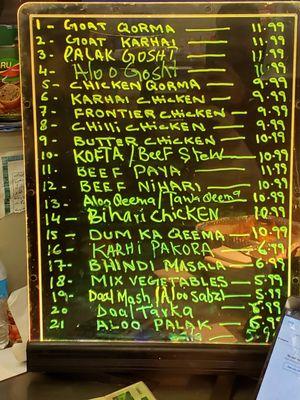 1 - GOAT QORMA — 11.99
2 - GOAT KARHAI — 11.99
3 - PALAK GOSHT — 11.99
4 - Aloo Gosht — 11.99
5 - CHICKEN QORMA — 9.99
6 - KARHAI CHICKEN — 9.99
7 - FRONTIER CHICKEN — 9.99
8 - CHILLI CHICKEN — 9.99
9 - BUTTER CHICKEN — 10.99
10 - KOFTA/BEEF STEW — 10.99
11 - BEEF PAYA — 11.99
12 - BEEF NIHARI — 10.99
13 - Aloo Qeema/Tawa Qeema — 10.99
14 - Bihari CHICKEN — 10.99
15 - DUM KA QEEMA — 10.99
16 - KARHI PAKORA — 6.99
17 - BHINDI MASALA — 6.99
18 - MIX VEGETABLES — 5.99
19 - Daal Mash/Aloo Sabzi — 5.99
20 Daal Tarka — 6.99
21 - ALOO PALAK — 6.99
5.99